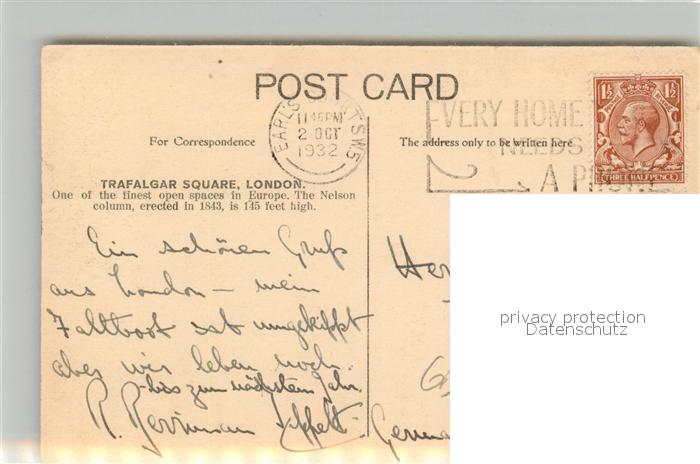 POST CARD
EARL'S COURT S.W.5
11 45 PM
2 OCT
1932
EVERY HOME
NEEDS
A PHONE
1½ 1½
THREE HALFPENCE
For Correspondence
The address only to be written here
TRAFALGAR SQUARE, LONDON.
One of the finest open spaces in Europe. The Nelson
column, erected in 1843, is 145 feet high.
Ein schönen Gruß
aus London – mein
Faltboot hat umgekippt
aber wir leben noch.
– bis zum nächstem Jahr.
R.
Her
Germa
privacy protection
Datenschutz